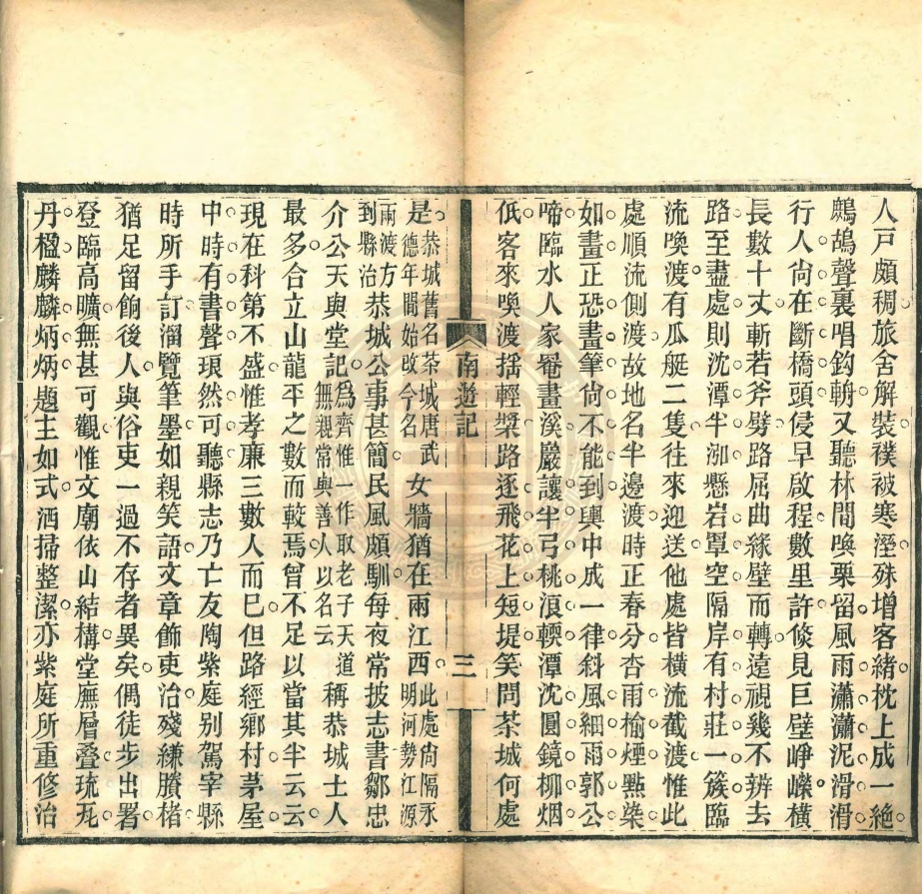 人戶頗稠旅舍解裝襆被寒溼殊增客緒枕上成一絶
鷓鴣聲裏唱鈎輈又聽林間喚栗留風雨瀟瀟泥滑滑
行人尙在斷橋頭侵早啟程數里許倐見巨壁崢嶸橫
長數十丈斬若斧劈路屈曲緣壁而轉遠視幾不辨去
路至盡處則沈潭半泖懸岩罩空隔岸有村莊一簇臨
流喚渡有瓜艇二隻往來迎送他處皆橫流截渡惟此
處順流側渡故地名半邊渡時正春分杏雨榆煙點染
如畫正恐畫筆尙不能到輿中成一律斜風細雨郭公
啼臨水人家罨畫溪巖讓半弓桃浪輭潭沈圓鏡柳烟
低客來喚渡揺輕槳路逐飛花上短堤笑問茶城何處
南遊記 三
是恭城舊名茶城唐武德年間始改今名女牆猶在兩江西此處尙隔永明河勢江源
兩渡方到縣治恭城公事甚簡民風頗馴每夜常披志書鄒忠
介公天與堂記爲齊惟一作取老子天道無親常與善人以名云稱恭城士人
最多合立山龍平之數而較焉曾不足以當其半云云
現在科第不盛惟孝廉三數人而已但路經鄉村茅屋
中時有書聲琅然可聽縣志乃亡友陶紫庭别駕宰縣
時所手訂溜覽筆墨如親笑語文章飾吏治殘縑賸楮
猶足留餉後人與俗吏一過不存者異矣偶徒步出署
登臨高曠無甚可觀惟文廟依山結構堂廡層叠琉瓦
丹楹麟麟炳炳題主如式洒掃整潔亦紫庭所重修治